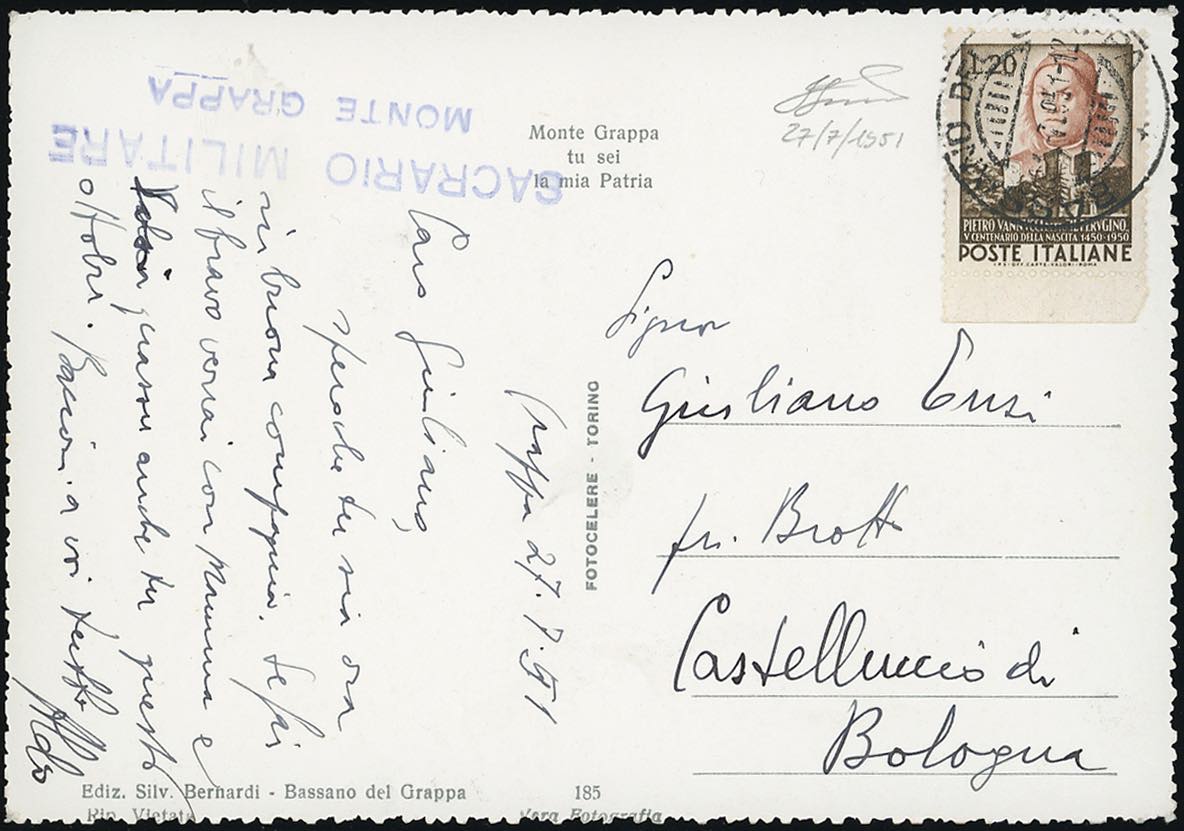 SACRARIO MILITARE
MONTE GRAPPA
Monte Grappa
tu sei
la mia Patria
27/7/1951
L.20
PIETRO VANNUCCI
V CENTENARIO DELLA NASCITA 1450-1950
POSTE ITALIANE
I.P.S. OFF. CARTE-VALORI-ROMA
Grappa 27.7.51
Caro Giuliano,
spero che tu sia ora
in buona compagnia. Se fai
il bravo verrai con Mamma e
quassù anche tu questo
ottobre. Bacioni a voi
Aldo
FOTOCELERE - TORINO
Signor
Giuliano
fr.
Castelluccio di
Bologna
Ediz. Silv. Bernardi - Bassano del Grappa
185
Rip. Vietata
Vera Fotografia